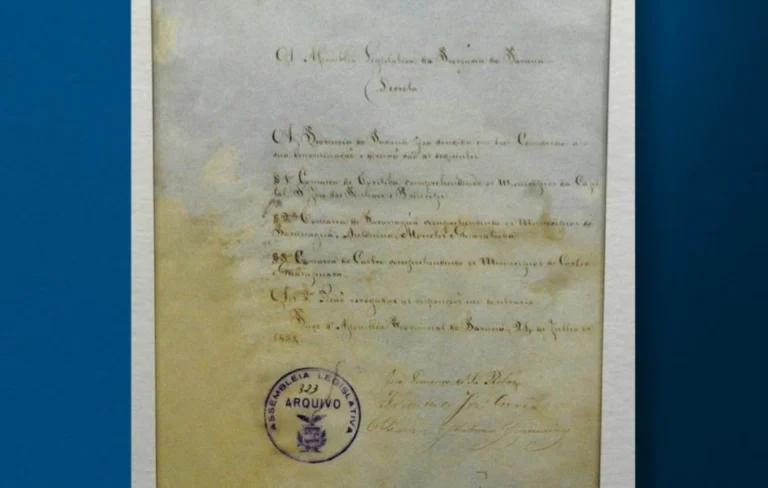 A Assemblea Legislativa da Provincia do Paraná
Decreta
A Provincia do Paraná fica dividida em tres Comarcas
sua denominação e são as seguintes
§ 1º Comarca de Coritiba comprehendendo os Municipios da Capi
tal, S. José dos Pinhaes e Principe
§ 2º Comarca de Paranaguá comprehendendo os Municipios de
Paranaguá, Antonina, Morretes e Guaratuba
§ 3º Comarca de Castro comprehendendo os Municipios de Castro
e Guarapuava
Art. 2º Ficão revogadas as disposições em contrario
Paço d'Assemblea Provincial do Paraná, 24 de Julho de
1854
José
José Correia
Antonio
ASSEMBLEIA LEGISLATIVA
323
ARQUIVO